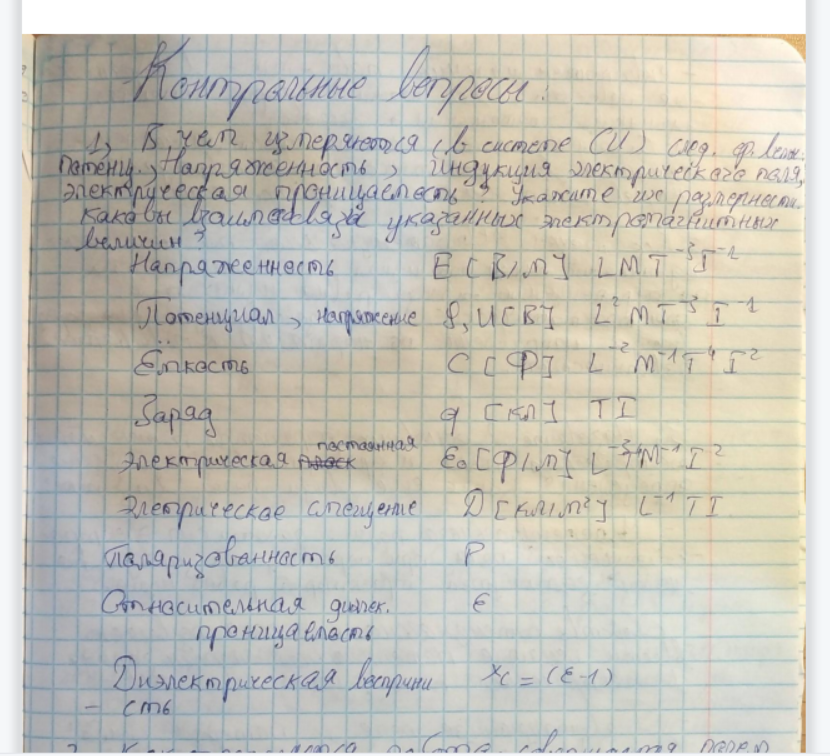 Контрольные вопросы:
1, В чем измеряются (в системе СИ) след. ф. велич.
потенц., Напряженность, индукция электрического поля,
электрическая проницаемость? Укажите их размерности.
Каковы взаимосвязи указанных электромагнитных
величин?
Напряженность E [В/м] LMT⁻³I⁻¹
Потенциал, напряжение φ, U [В] L²MT⁻³I⁻¹
Ёмкость C [Ф] L⁻²M⁻¹T⁴I²
Заряд q [Кл] TI
постоянная
Электрическая ε₀ [Ф/м] L⁻³T⁴M⁻¹I²
Элетрическое смещение D [Кл/м²] L⁻¹TI
Поляризованность P
Относительная диэлек. ε
проницаемость
Диэлектрическая восприим
- сть = (ε-1)